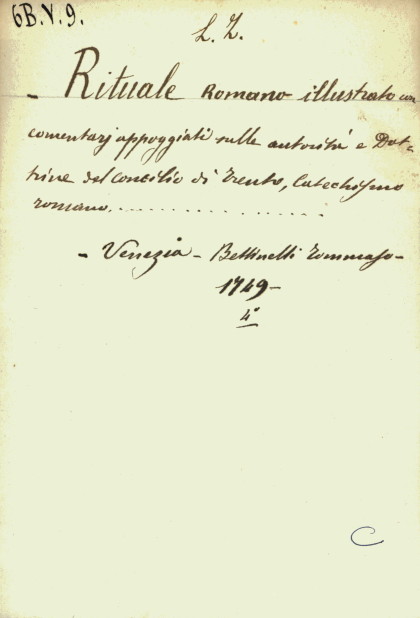 6B.V.9.
L. Z.
- Rituale Romano illustrato con
comentarj appoggiati sulle autorità e Dot-
trine del Concilio di Trento, Catechismo
romano..................
- Venezia - Bettinelli Tommaso -
1749 -
4°
C